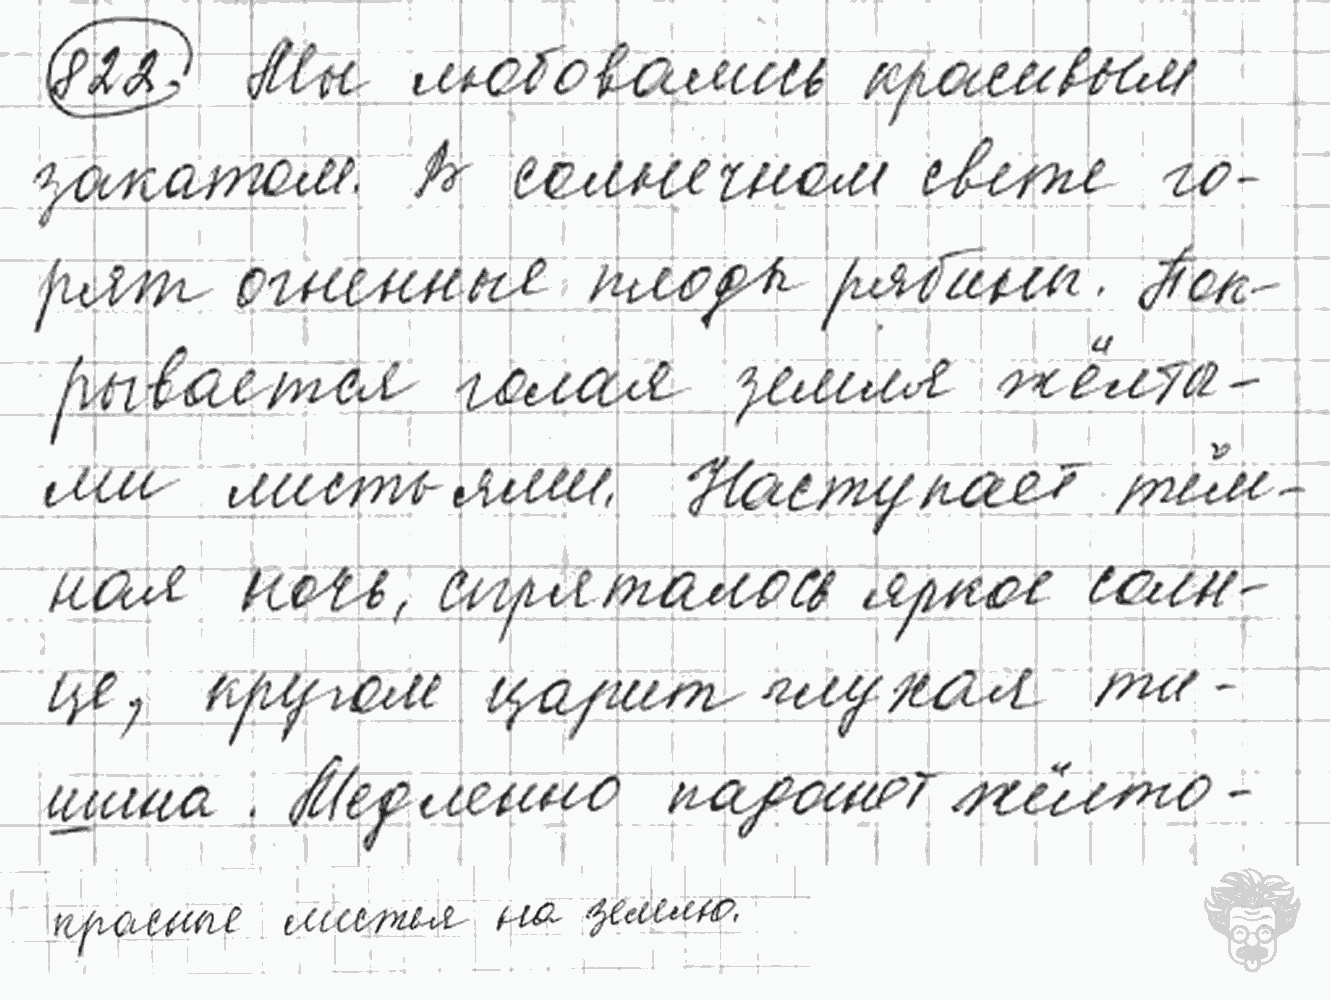 822. Мы любовались красивым
закатом. В солнечном свете го-
рят огненные плоды рябины. Пок-
рывается голая земля жёлты-
ми листьями. Наступает тём-
ная ночь, спряталось яркое солн-
це, кругом царит глухая ти-
шина. Медленно падают жёлто-
красные листья на землю.